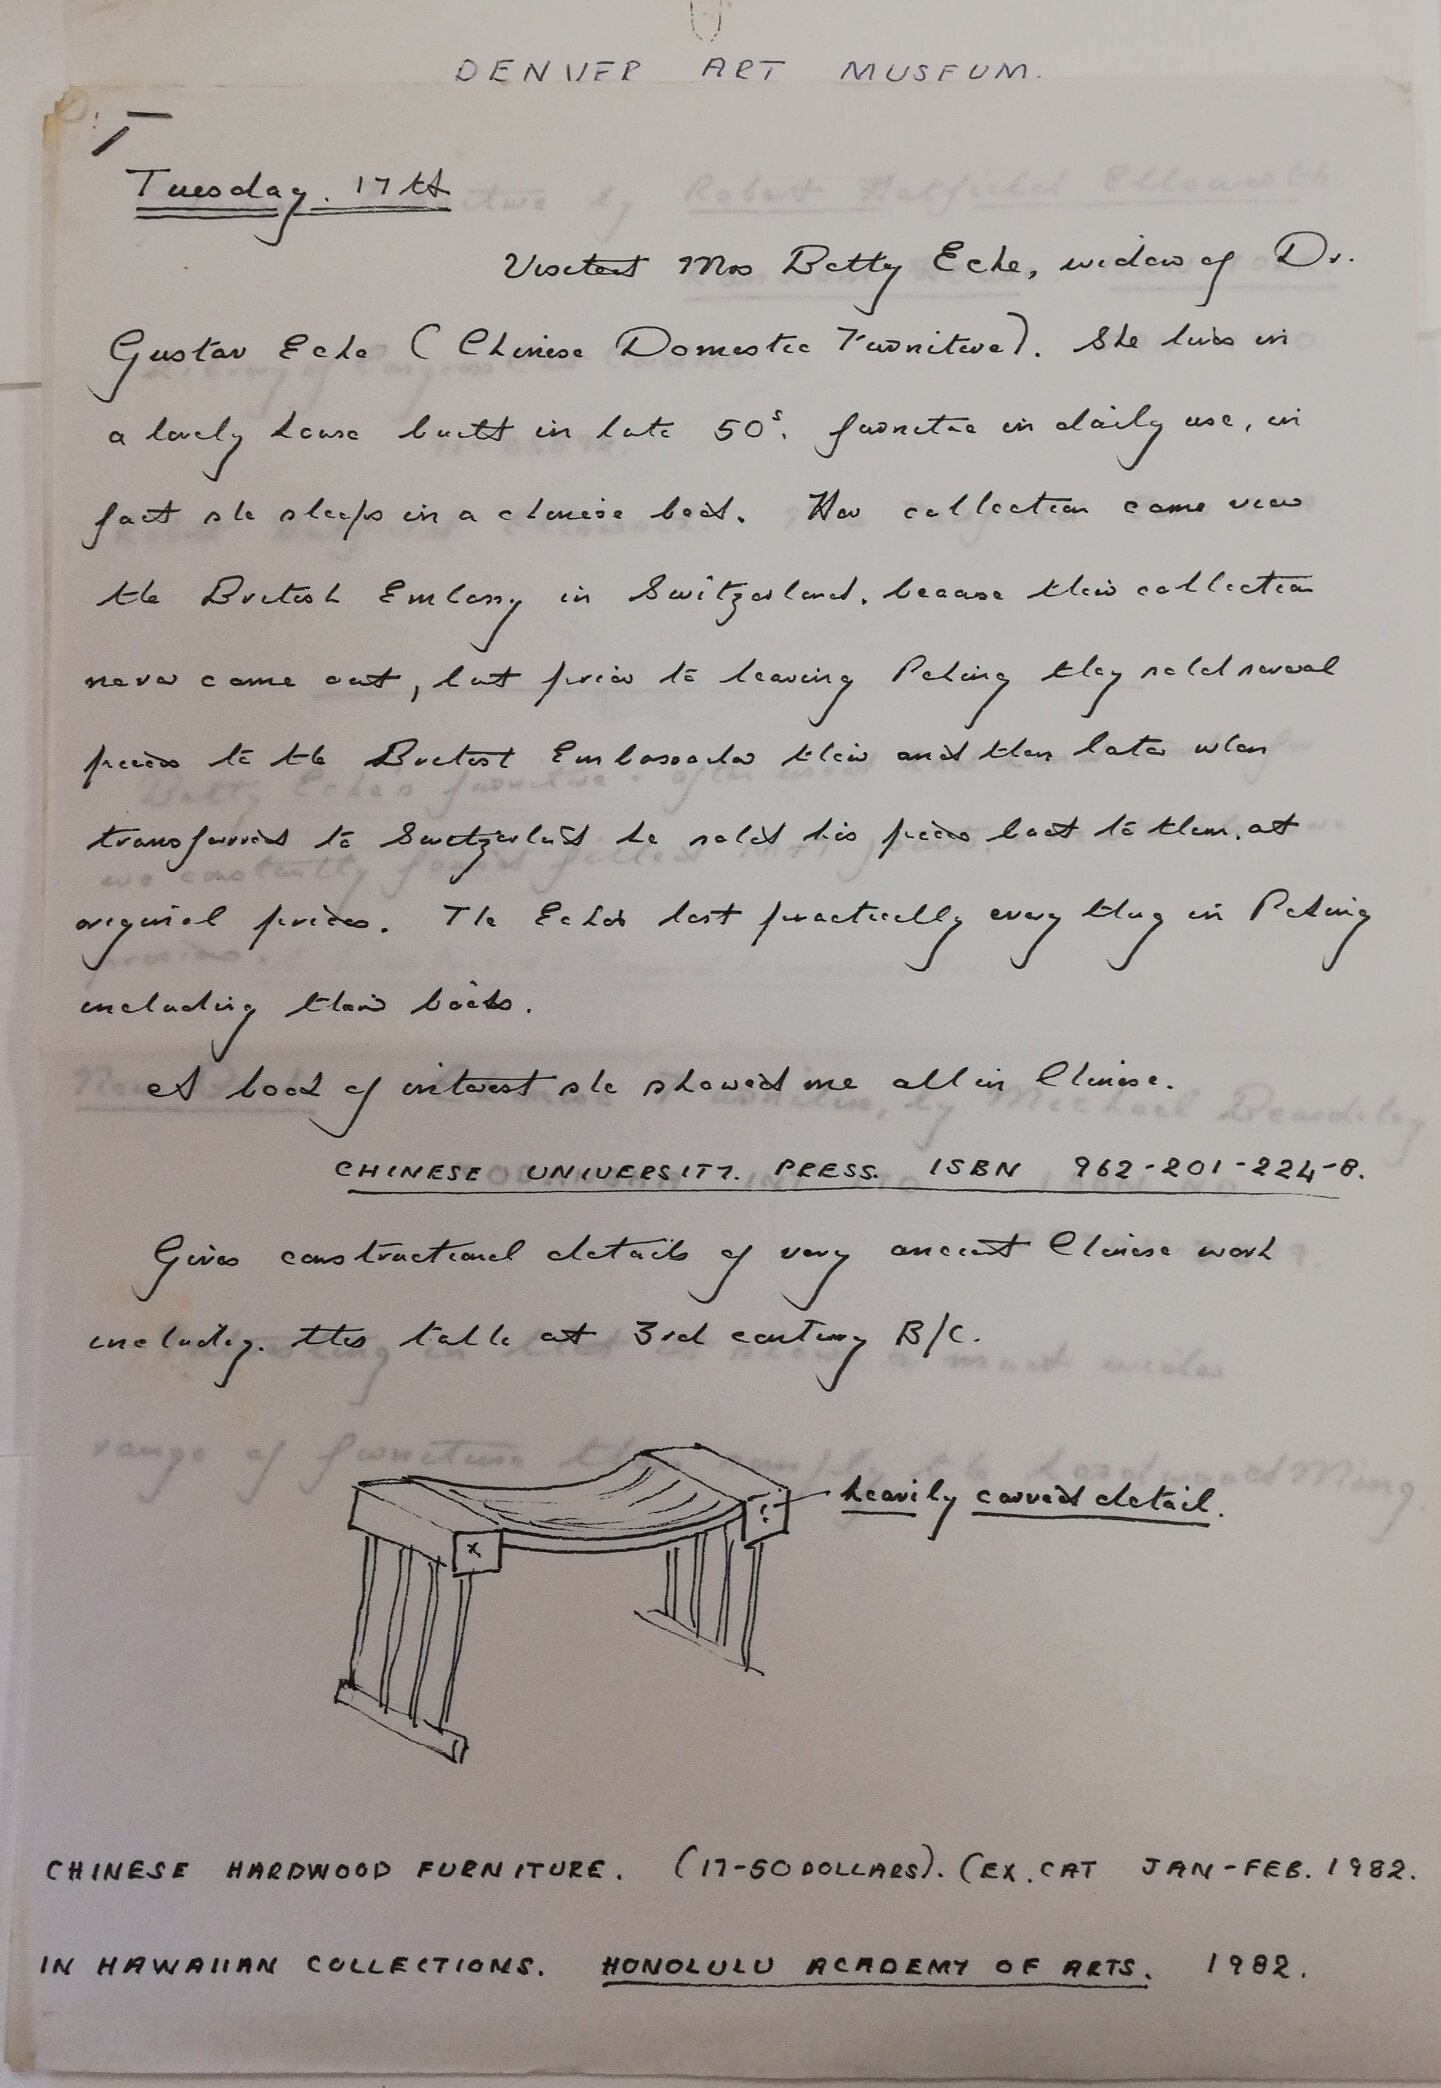 DENVER ART MUSEUM.
Tuesday. 17th
Visited Mrs Betty Ecke, widow of Dr.
Gustav Ecke (Chinese Domestic Furniture). She lives in
a lovely house built in late 50s. furniture in daily use, in
fact she sleeps in a chinese bed. Her collection came view
the British Embassy in Switzerland. because their collection
never came out, but prior to leaving Peking they sold several
pieces to the British Embassador their and then later when
transferred to Switzerland he sold his pieces back to them. at
original prices. The Eckes lost practically every thing in Peking
including their books.
A book of interest she showed me all in Chinese.
CHINESE UNIVERSITY. PRESS. ISBN 962-201-224-8.
Gives constructional details of very ancient Chinese work
including. this table at 3rd century B/C.
heavily carved detail.
CHINESE HARDWOOD FURNITURE. (17-50 DOLLARS). (EX. CAT JAN-FEB. 1982.
IN HAWAIIAN COLLECTIONS. HONOLULU ACADEMY OF ARTS. 1982.